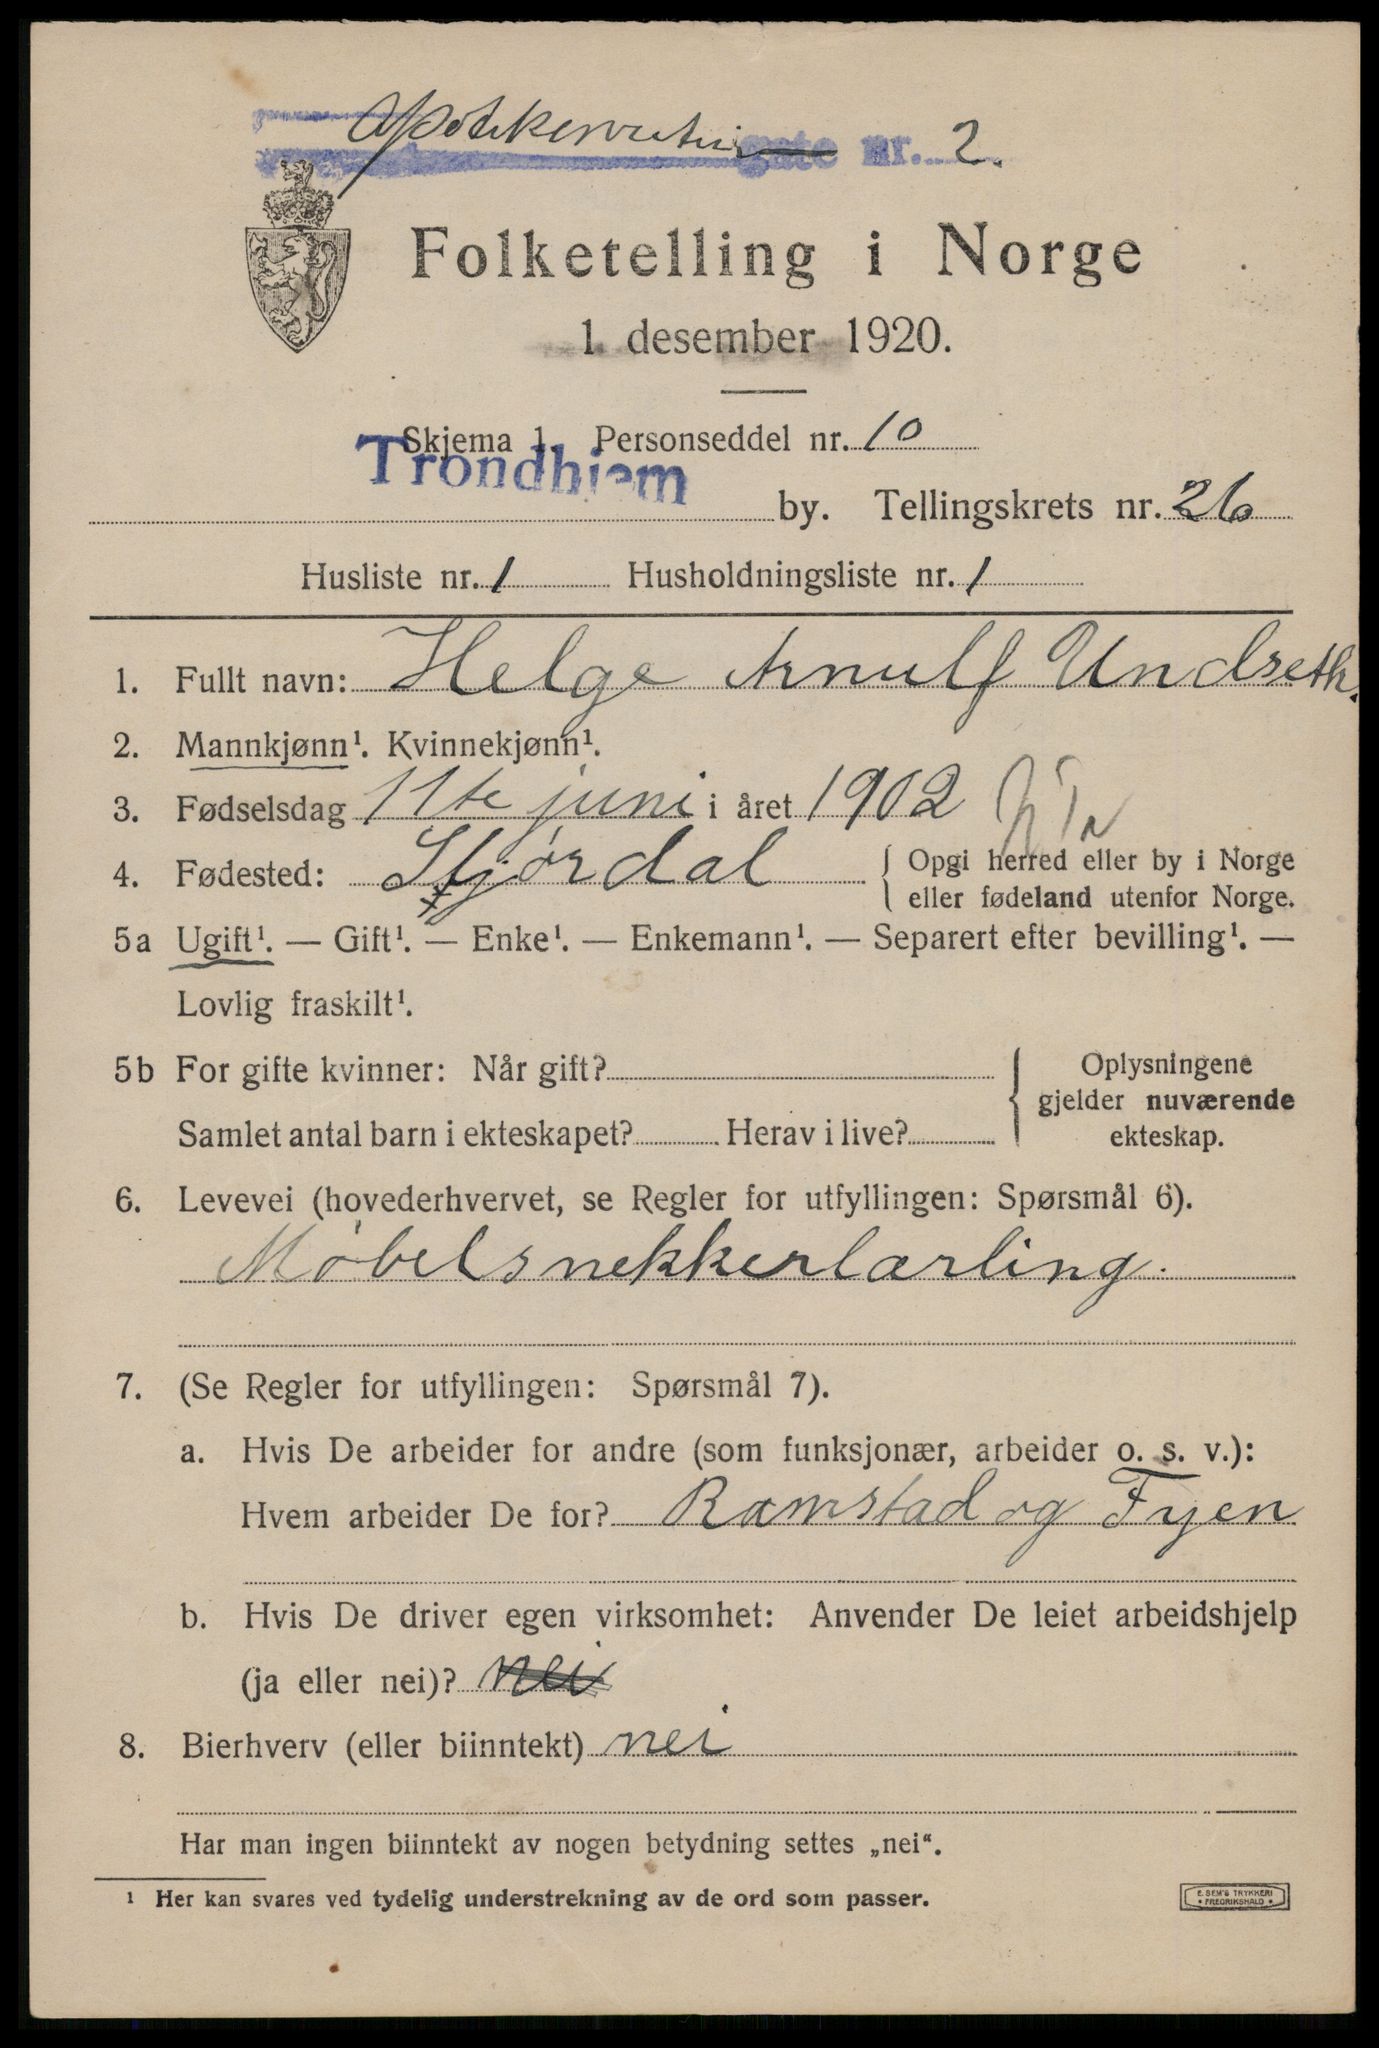 gate nr. 2.
Folketelling i Norge
1. desember 1920.
Skjema 1. Personseddel nr. 10
Trondhjem by. Tellingskrets nr. 26
Husliste nr. 1 Husholdningsliste nr. 1
1. Fullt navn: Helge Arnulf Undseth.
2. Mannkjønn¹. Kvinnekjønn¹.
3. Fødselsdag 11te juni i året 1902
4. Fødested: Stjørdal { Opgi herred eller by i Norge
eller fødeland utenfor Norge.
5a Ugift¹. — Gift¹. — Enke¹. — Enkemann¹. — Separert efter bevilling¹. —
Lovlig fraskilt¹.
5b For gifte kvinner: Når gift?
Samlet antal barn i ekteskapet? Herav i live?
{ Oplysningene
gjelder nuværende
ekteskap.
6. Levevei (hovederhvervet, se Regler for utfyllingen: Spørsmål 6).
Møbelsnekkerlærling.
7. (Se Regler for utfyllingen: Spørsmål 7).
a. Hvis De arbeider for andre (som funksjonær, arbeider o. s. v.):
Hvem arbeider De for? Ramstad og Fyen
b. Hvis De driver egen virksomhet: Anvender De leiet arbeidshjelp
(ja eller nei)? nei
8. Bierhverv (eller biinntekt) nei
Har man ingen biinntekt av nogen betydning settes „nei".
¹ Her kan svares ved tydelig understrekning av de ord som passer.
E. SEM'S TRYKKERI
• FREDRIKSHALD •